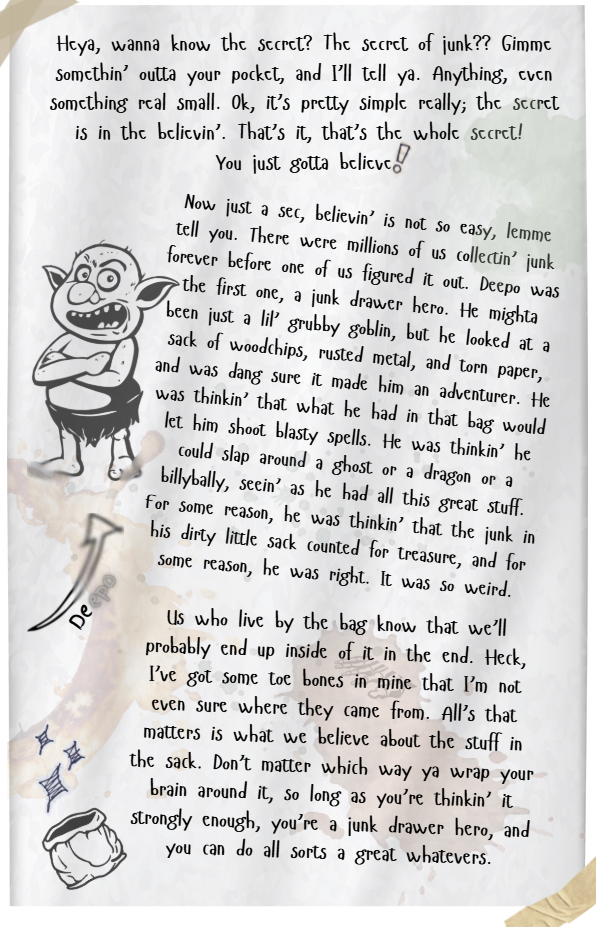 Heya, wanna know the secret? The secret of junk?? Gimme
somethin' outta your pocket, and I'll tell ya. Anything, even
something real small. Ok, it's pretty simple really; the secret
is in the believin'. That's it, that's the whole secret!
You just gotta believe!
Now just a sec, believin' is not so easy, lemme
tell you. There were millions of us collectin' junk
forever before one of us figured it out. Deepo was
the first one, a junk drawer hero. He mighta
been just a lil' grubby goblin, but he looked at a
sack of woodchips, rusted metal, and torn paper,
and was dang sure it made him an adventurer. He
was thinkin' that what he had in that bag would
let him shoot blasty spells. He was thinkin' he
could slap around a ghost or a dragon or a
billybally, seein' as he had all this great stuff.
For some reason, he was thinkin' that the junk in
his dirty little sack counted for treasure, and for
some reason, he was right. It was so weird.
Deepo
Us who live by the bag know that we'll
probably end up inside of it in the end. Heck,
I've got some toe bones in mine that I'm not
even sure where they came from. All's that
matters is what we believe about the stuff in
the sack. Don't matter which way ya wrap your
brain around it, so long as you're thinkin' it
strongly enough, you're a junk drawer hero, and
you can do all sorts a great whatevers.